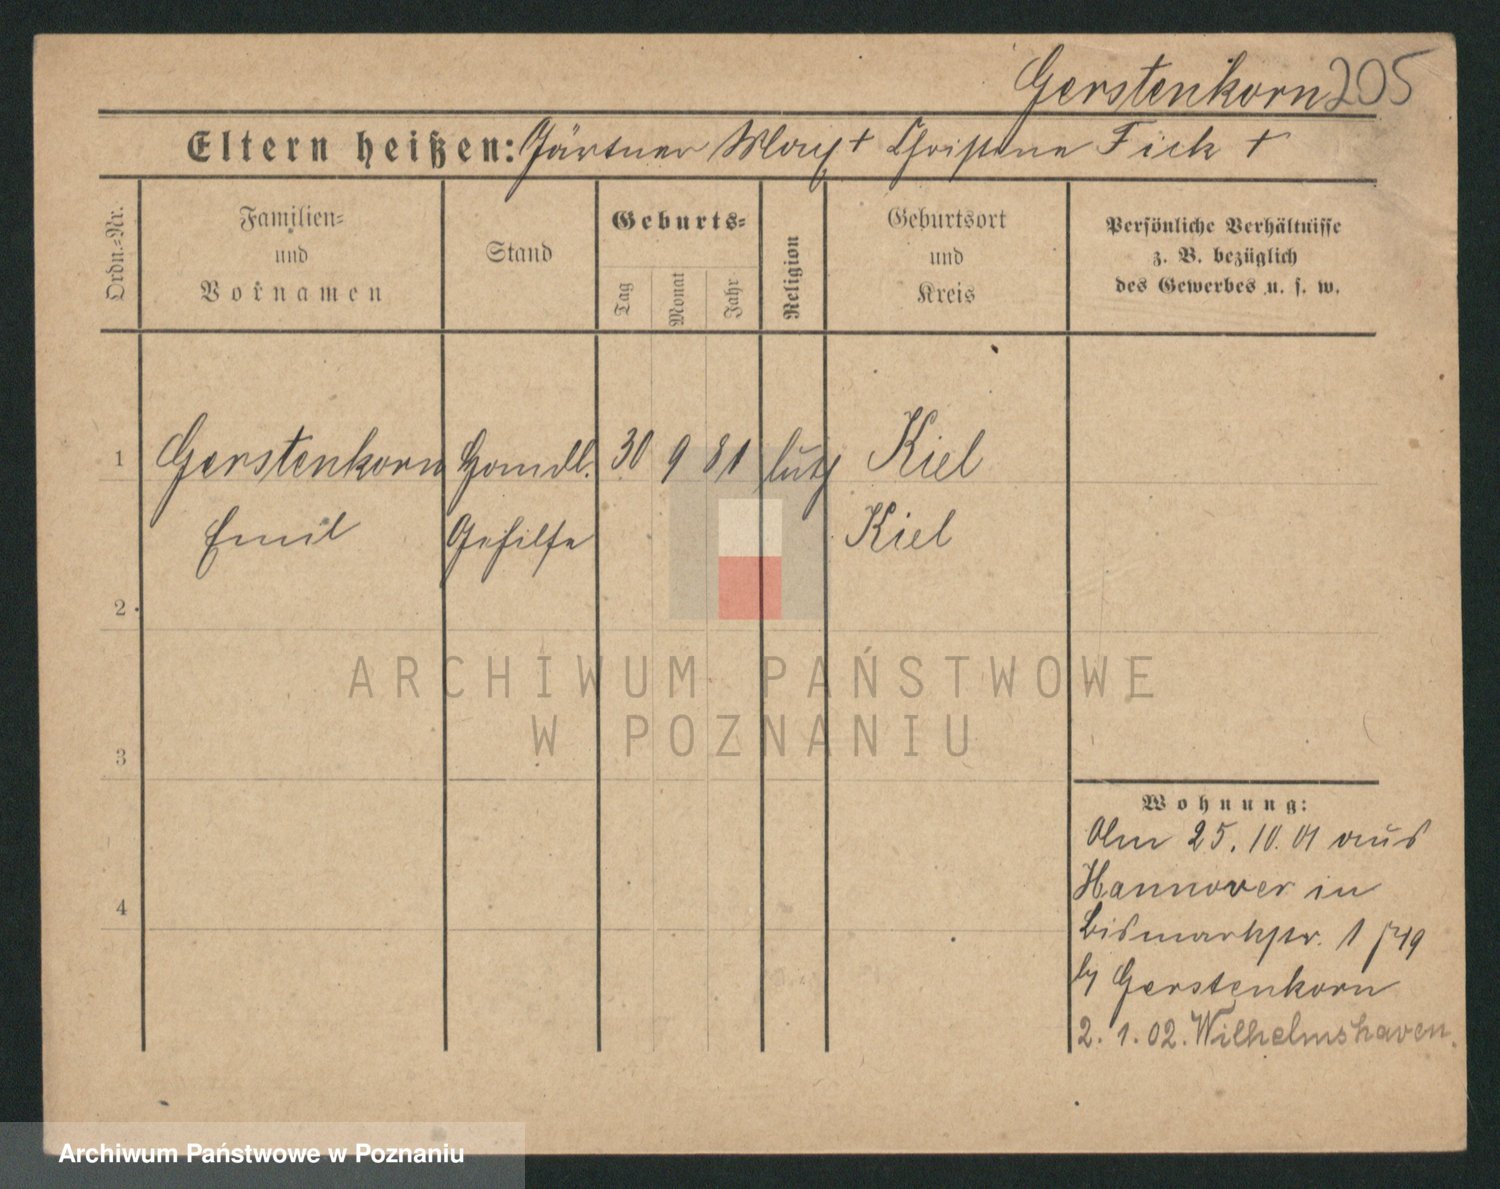 Gerstenkorn 205
Eltern heißen: Gärtner Max † Christine Fick †
Ordn.=Nr.
Familien=
und
Vornamen
Stand
Geburts=
Tag
Monat
Jahr
Religion
Geburtsort
und
Kreis
Persönliche Verhältnisse
z. B. bezüglich
des Gewerbes u. s. w.
1 Gerstenkorn Handl. 30 9 81 luth Kiel
Emil Gehilfe Kiel
2
3
4
ARCHIWUM PAŃSTWOWE
W POZNANIU
Wohnung:
Am 25. 10. 01 aus
Hannover in
Bismarkstr. 1
by Gerstenkorn
2. 1. 02. Wilhelmshaven.
Archiwum Państwowe w Poznaniu